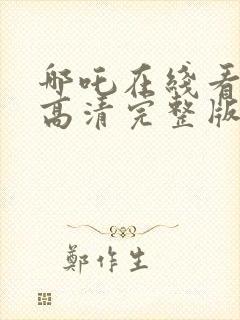 哪吒在线看
高清完整版
鄭作生